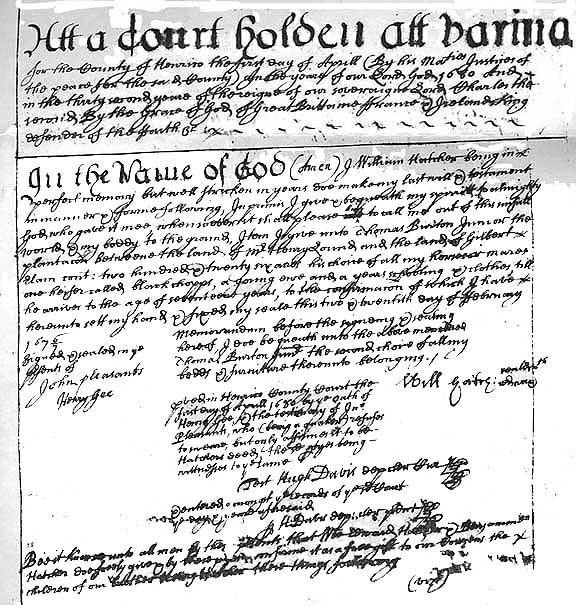 Att a Court holden att varina
for the County of Henrico the first day of Aprill (By his Maties Justices of
the peace for the said County) in the yeare of our Lord God 1680 And
in the thirty second yeare of the reigne of our soveraigne Lord Charles the
second By the Grace of God of Great Brittaine ffrance & Ireland King
defender of the ffaith &c
In the Name of God (Amen) I William Hatcher being in
perfect memory but well stricken in years doe make my last will & testament
in manner & forme following, In primis I give & bequeath my spirritt to almighty
God, who gave it mee whensoever he it shall please to call me out of this sinfull
world, & my boddy to the ground, Item I give unto Thomas Burton Junior the
plantacon betweene the land of Mr Henry Lound and the land of Gilbert
Elam cont: two hundred & twenty six acres his choice of all my horses or mares
one heifer called black chopps, a young ewe and a years schooling & clothes till
he arrives to the age of seventeene years, to the confirmacon of which I have
hereunto sett my hand & fixed my seale this two & twentieth day of ffebruary
1676
Memorandum before the signeing & sealing
hereof I doe bequeath unto the above mentioned
Thomas Burton the second choice of all my
bedds & furniture thereunto belonging
Signed & sealed in ye
psents of
John pleasants
Henry Gee
Will Hatcher
Proved in Henrico County Court the
first day of Aprill 1680 by ye oath of
Henry Gee & the testimony of Jno
Pleasants, who (being a quaker) refuses
to sweare, but only affirmes it to be
Hatchers deed, the sayes being
wittnesses to ye same
Test Hugh Davis dep cler Cur
& entered amongst ye records of ye County
ye day & yeare aforesaid
p H Davis dep: cler
Bee it knowne unto all men by these psents that Wee Edward Hatcher & Benjamin
Hatcher doe freely give by these
children of our these things following
(vizt)